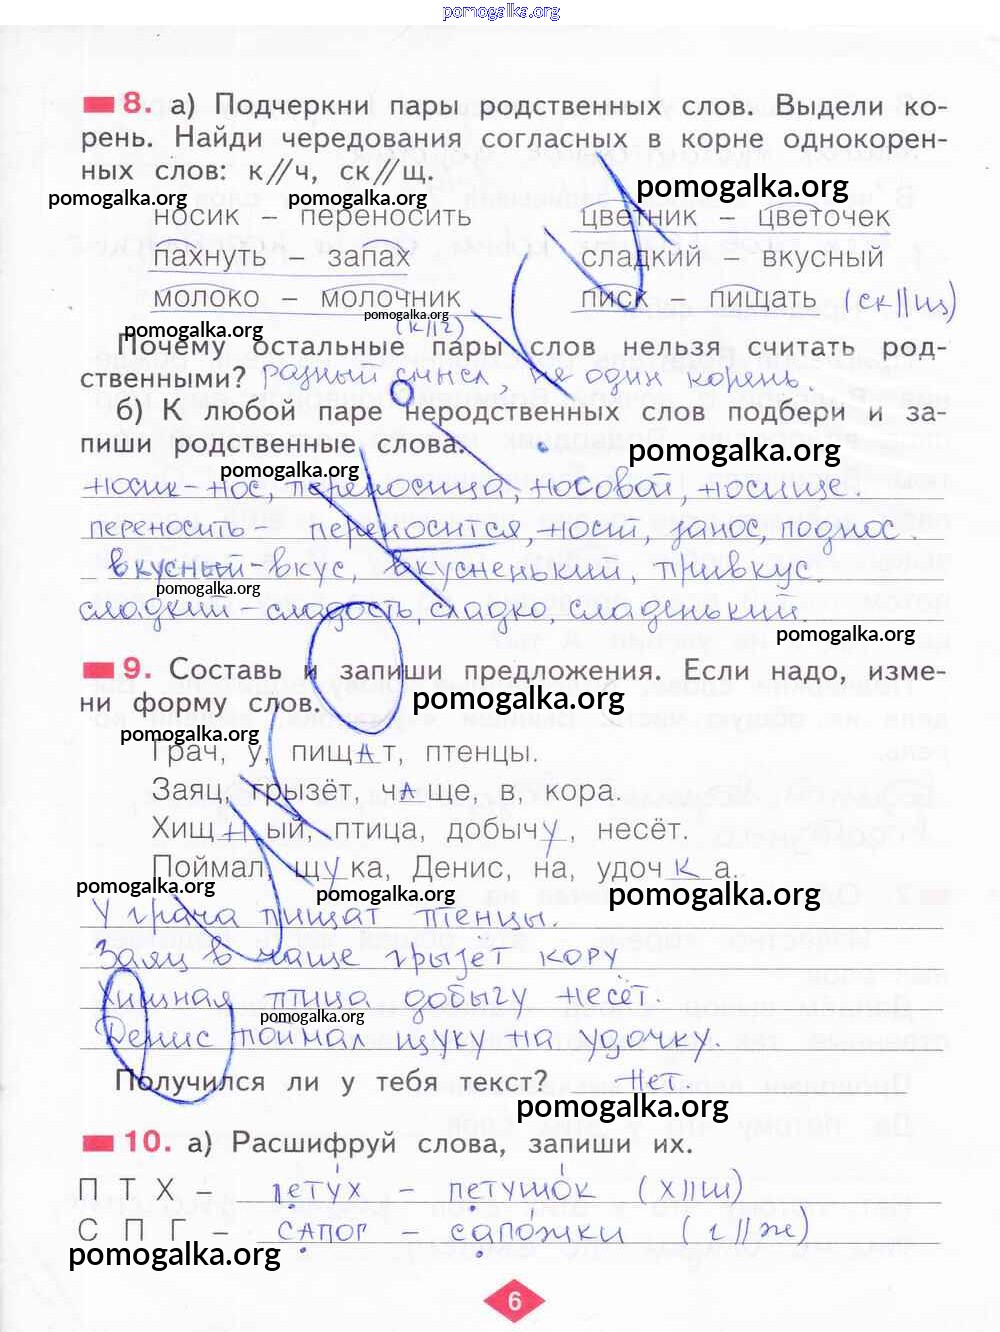 pomogalka.org
8. а) Подчеркни пары родственных слов. Выдели ко-
рень. Найди чередования согласных в корне однокорен-
ных слов: к//ч, ск//щ.
pomogalka.org pomogalka.org pomogalka.org
носик – переносить цветник – цветочек
пахнуть – запах сладкий – вкусный
молоко – молочник писк – пищать (ск||щ)
pomogalka.org (к||ч) pomogalka.org
Почему остальные пары слов нельзя считать род-
ственными? разный смысл, не один корень.
б) К любой паре неродственных слов подбери и за-
пиши родственные слова.
pomogalka.org pomogalka.org
носик – нос, переносица, носовой, носище.
переносить – переносится, носи, занос, поднос.
вкусный – вкус, вкусненький, привкус.
pomogalka.org
сладкий – сладость, сладко, сладенький.
pomogalka.org
9. Составь и запиши предложения. Если надо, изме-
ни форму слов.
pomogalka.org pomogalka.org
Грач, у, пищАт, птенцы.
Заяц, грызёт, чАще, в, кора.
Хищный, птица, добычу, несёт.
Поймал, щука, Денис, на, удочка.
pomogalka.org pomogalka.org pomogalka.org
У грача пищат птенцы.
Заяц в чаще грызет кору
Хищная птица добычу несёт.
pomogalka.org
Денис поймал щуку на удочку.
Получился ли у тебя текст? Нет.
pomogalka.org
10. а) Расшифруй слова, запиши их.
П Т Х – петух – петушок (х||ш)
С П Г – сапог – сапожки (г||ж)
pomogalka.org
6